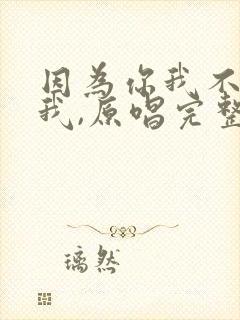 因為你我不
我,原唱完整
璃然